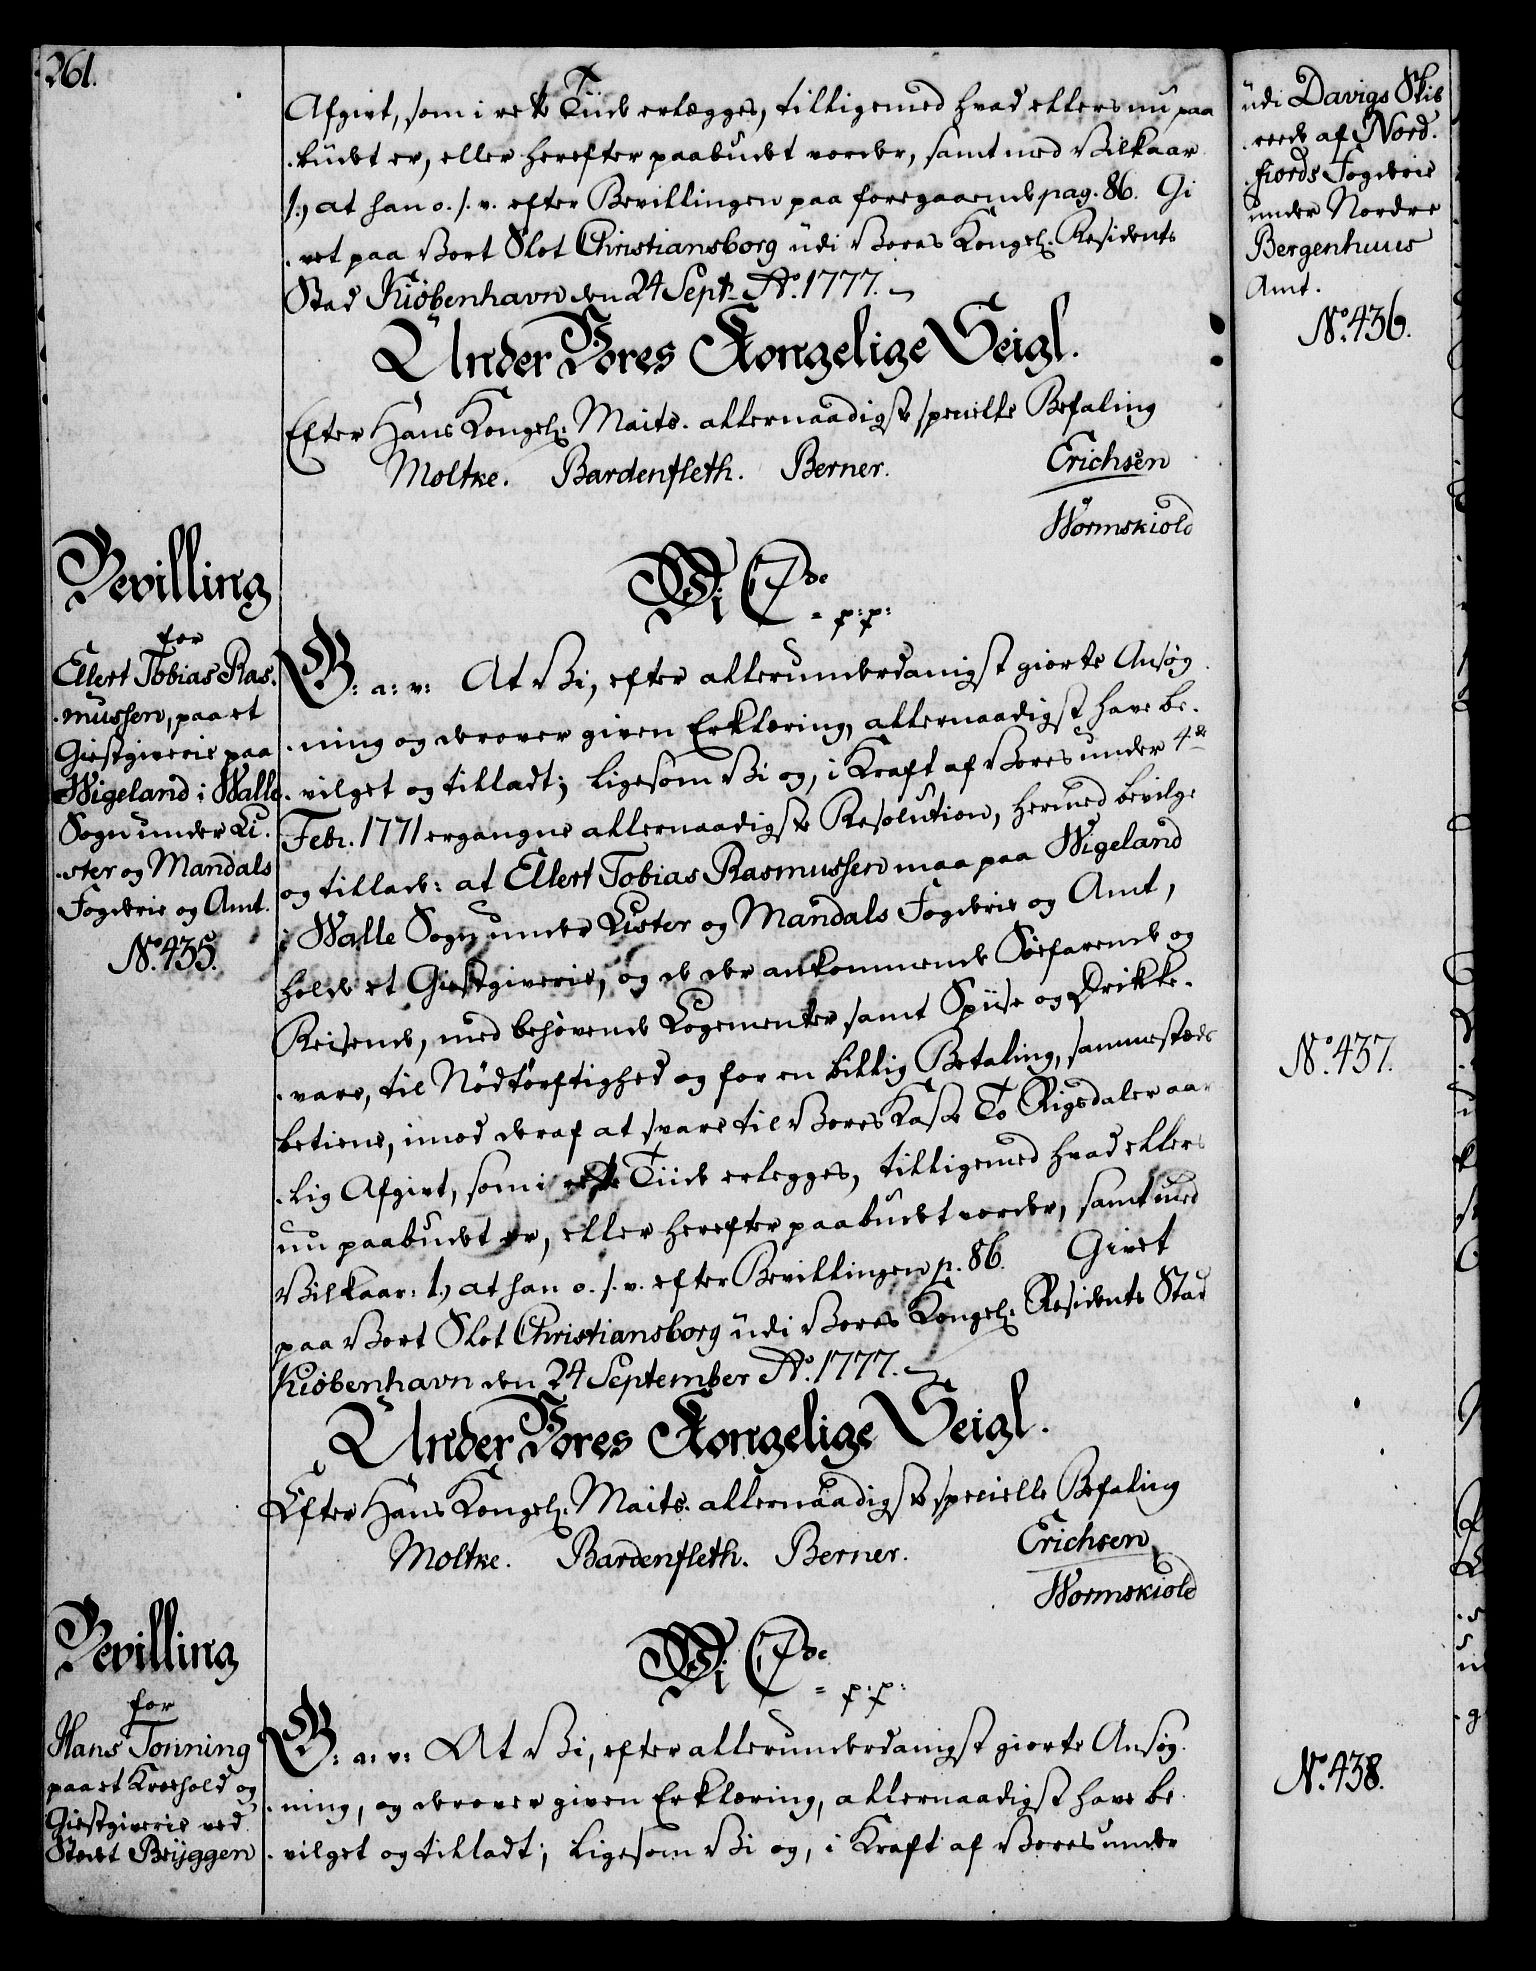 261.
Afgivt, som i rette Tiid erlægges, tilligemed hvad ellers nu paa
budet er, eller herefter paabudet vorder, samt med Vilkaar
1.) at han o. s. v. efter Bevillingen paa foregaaende pag. 86. Gi
vet paa Vort Slot Christiansborg udi Vores Kongel: Residents
Stad Kiöbenhavn den 24 Sept. Ao. 1777.
Under Vores Kongelige Seigl.
Efter Hans Kongel: Maits. allernaadigste specielle Befaling
Moltke. Bardenfleth. Berner. Erichsen
Wormskiold
Bevilling
for
Ellert Tobias Ras.
mussen, paa et
Giestgiverie paa
Wigeland i Walle
Sogn under Li.
ster og Mandals
Fogderie og Amt.
No. 435.
Wi C 7de
= p: p:
G: a: v: At Vi, efter allerunderdanigst giorte Ansög
ning og derover given Erklæring, allernaadigst have be.
vilget og tilladt; ligesom Vi og, i Kraft af Vores under 4de
Febr. 1771 ergangne allernaadigste Resolution, hermed bevilge
og tillade: at Ellert Tobias Rasmussen maa paa Wigeland
i Walle Sogn under Lister og Mandals Fogderie og Amt,
holde et Giestgiverie, og de der ankommende Söefarende og
Reisende, med behövende Logementer samt Spiise og Drikke.
vare, til Nödtörftighed og for en billig Betaling, sammesteds
betiene, imod deraf at svare til Vores Kasse To Rigsdaler aar
lig Afgivt, som i rette Tiid erlegges, tilligemed hvad ellers
nu paabudet er, eller herefter paabudet vorder, samt med
Vilkaar: 1.) at han o. s. v. efter Bevillingen p. 86. Givet
paa Vort Slot Christiansborg udi Vores Kongel: Residents Stad
Kiöbenhavn den 24 September Ao. 1777.
Under Vores Kongelige Seigl.
Efter Hans Kongel: Maits. allernaadigste specielle Befaling
Moltke. Bardenfleth. Berner. Erichsen
Wormskiold
Bevilling
for
Hans Tonning
paa et Kroehold og
Giestgiverie ved
Stædet Bryggen
Wi C 7de
= p: p:
G: a: v: At Vi, efter allerunderdanigst giorte Ansög.
ning, og derover given Erklæring, allernaadigst have be
vilget og tilladt; ligesom Vi og, i Kraft af Vores under
udi Davigs Skib
reede af Nord.
fiords Fogderie
under Nordre
Bergenhuus
Amt.
No. 436.
No. 437.
No. 438.